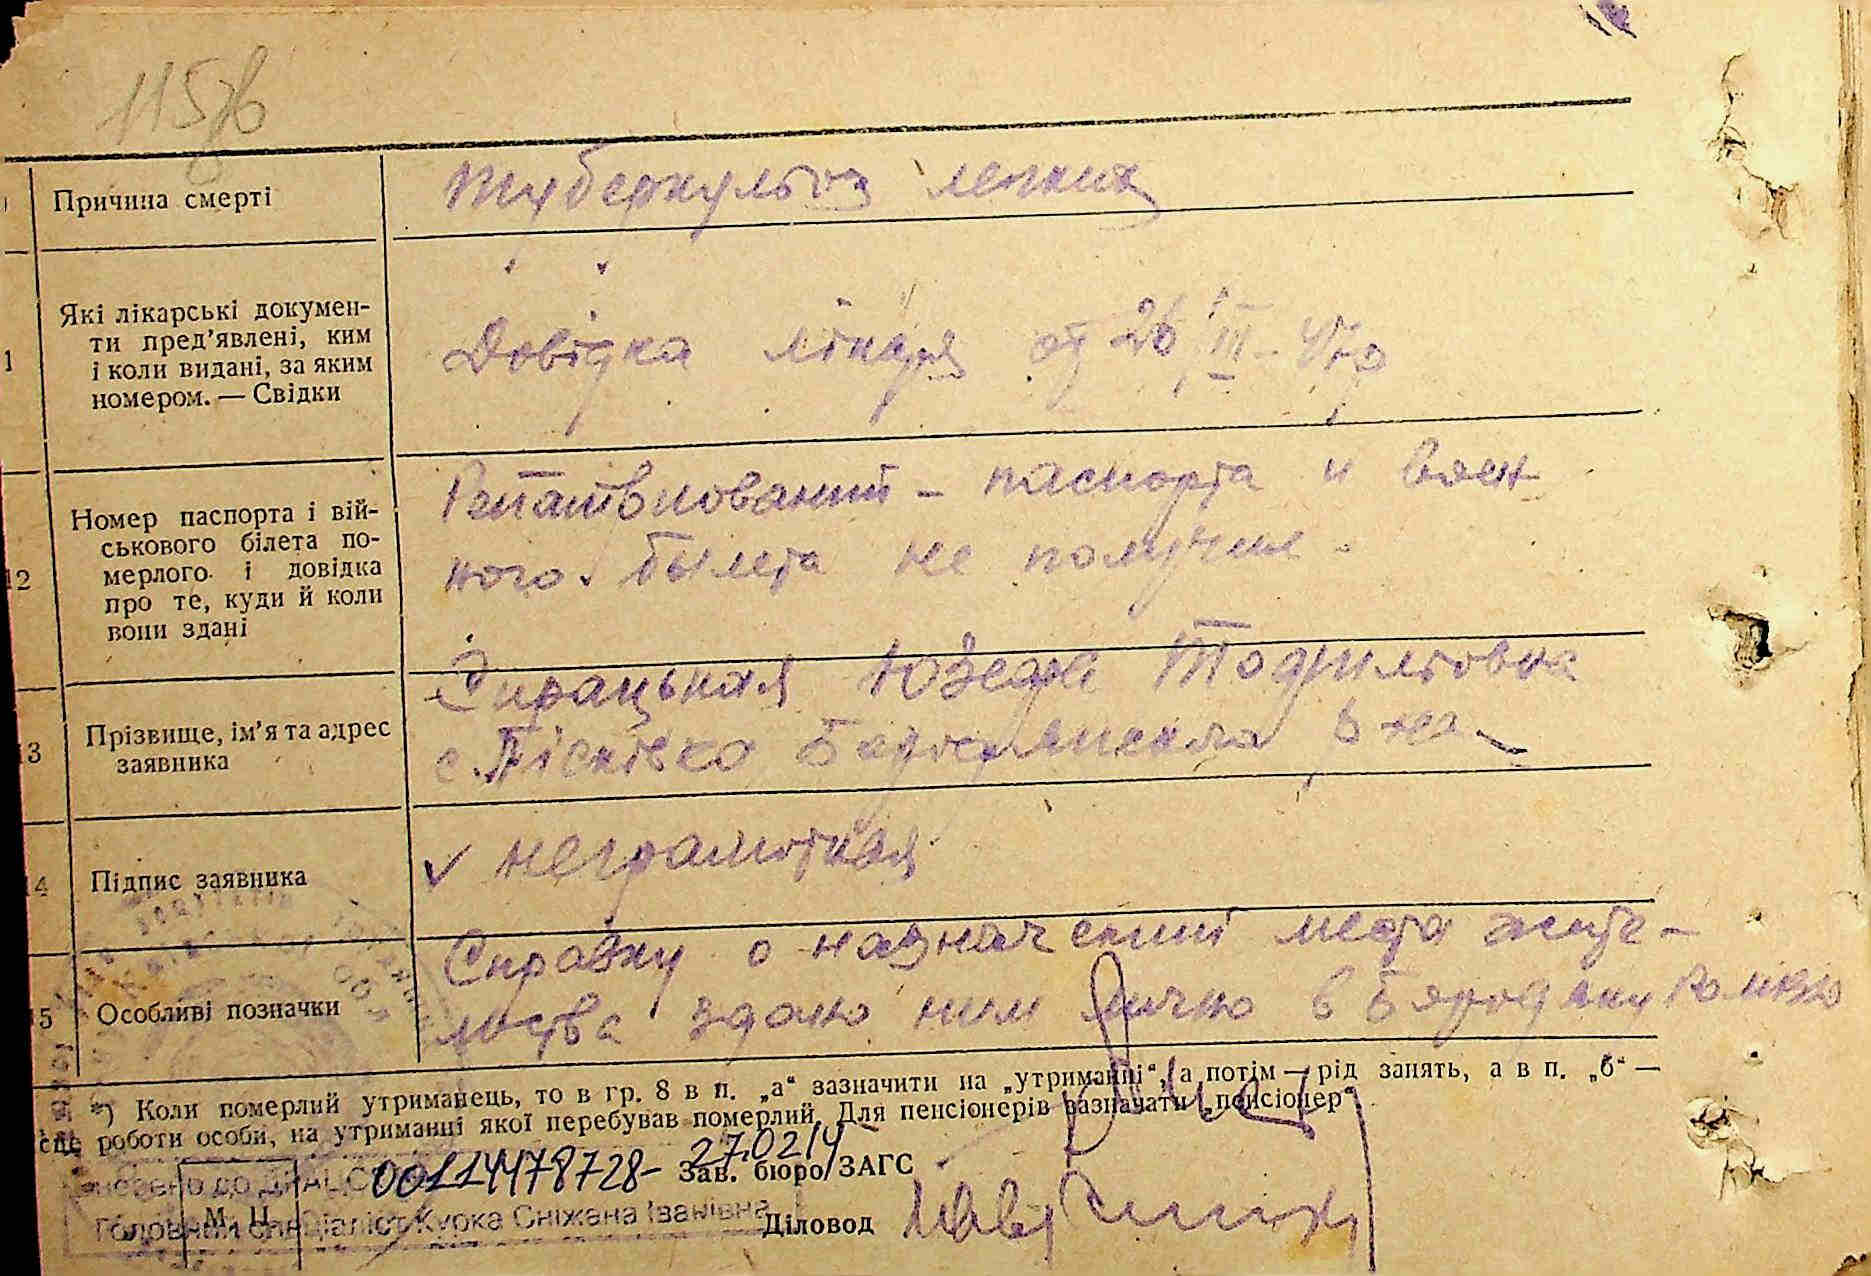 115
Причина смерті
туберкульоз легких
Які лікарські докумен-
ти пред'явлені, ким
і коли видані, за яким
номером. — Свідки
Довідка лікаря от 26 III - 47 р
12
Номер паспорта і вій-
ськового білета по-
мерлого і довідка
про те, куди й коли
вони здані
паспорта и воен-
ного билета не получил.
13
Прізвище, ім'я та адрес
заявника
Юзефа Теофильовна
с. Пісківка Бородянського р-на
14
Підпис заявника
неграмотная
15
Особливі позначки
Справку о назначении места жите-
льства здано ним лично в
*) Коли померлий утриманець, то в гр. 8 в п. „а“ зазначити на „утриманні“, а потім — рід занять, а в п. „б“ —
роботи особи, на утриманні якої перебував померлий. Для пенсіонерів зазначати „пенсіонер“
внесено до ДРАЦС 00114478728- 27.02.14
Зав. бюро ЗАГС
М. П.
Головний спеціаліст Курка Сніжана Іванівна
Діловод